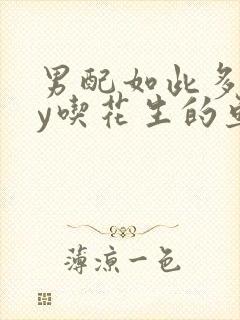 男配如此多
y喫花生的
薄凉一色